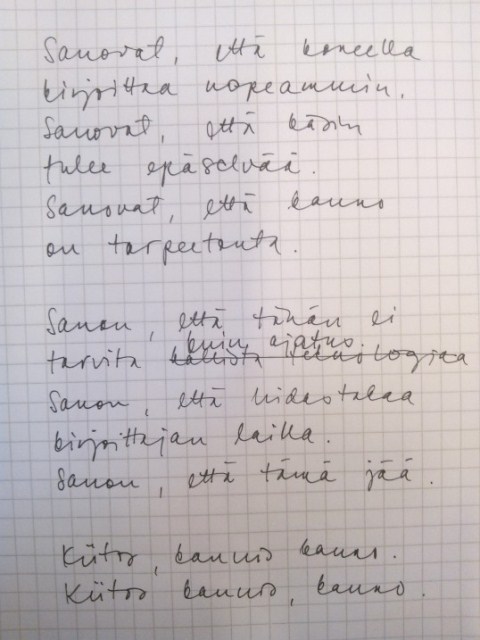 Sanovat, että koneella
kirjoittaa nopeammin.
Sanovat, että käsin
tulee epäselvää.
Sanovat, että kauno
on tarpeetonta.
Sanon, että tähän ei
kuin ajatus.
tarvita kallista teknologiaa
Sanon, että hidastakaa
kirjoittajan lailla.
Sanon, että tämä jää.
Kiitos, kaunis kauno.
Kiitos kaunis, kauno.